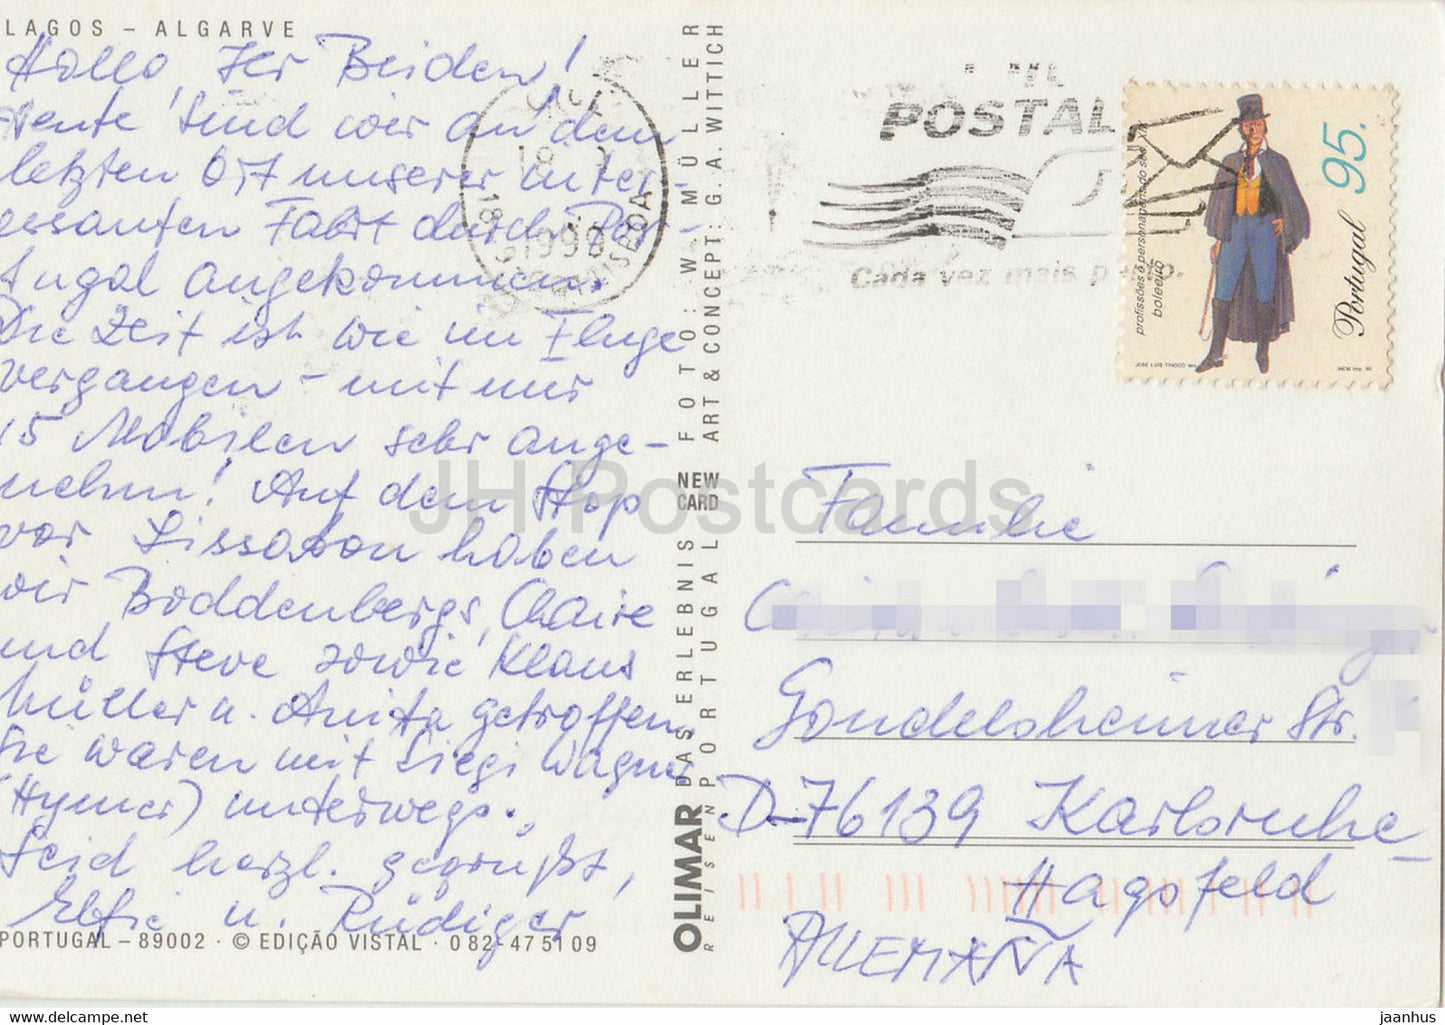 LAGOS – ALGARVE
Hallo, Ihr Beiden!
Heute sind wir an dem
letzten Ort unserer inter-
essanten Fahrt durch Por-
tugal angekommen.
Die Zeit ist wie im Fluge
vergangen – mit nur
15 Mobilen sehr ange-
nehm! Auf dem Stop
vor Lissabon haben
wir Boddenbergs, Claire
und Steve sowie Klaus
Müller u. Anita getroffen.
Sie waren mit Siegi Wagner
(Hymer) unterwegs.
Seid herzl. gegrüßt,
Elfie u. Rüdiger
PORTUGAL – 89002 · © EDIÇÃO VISTAL · 082-475109
OLIMAR DAS ERLEBNIS
REISEN PORTUGAL
NEW
CARD
FOTO: W. MÜLLER
ART & CONCEPT: G. A. WITTICH
POSTAL
Cada vez mais
18
1998
profissões e personagens do séc. XIX
boleeiro
95.
Portugal
JOSÉ LUIS TINOCO
INCM
Familie
Gondelsheimer Str.
D-76139 Karlsruhe-
Hagsfeld
ALLEMAÑA
JH Postcards
jaanhus © www.delcampe.net